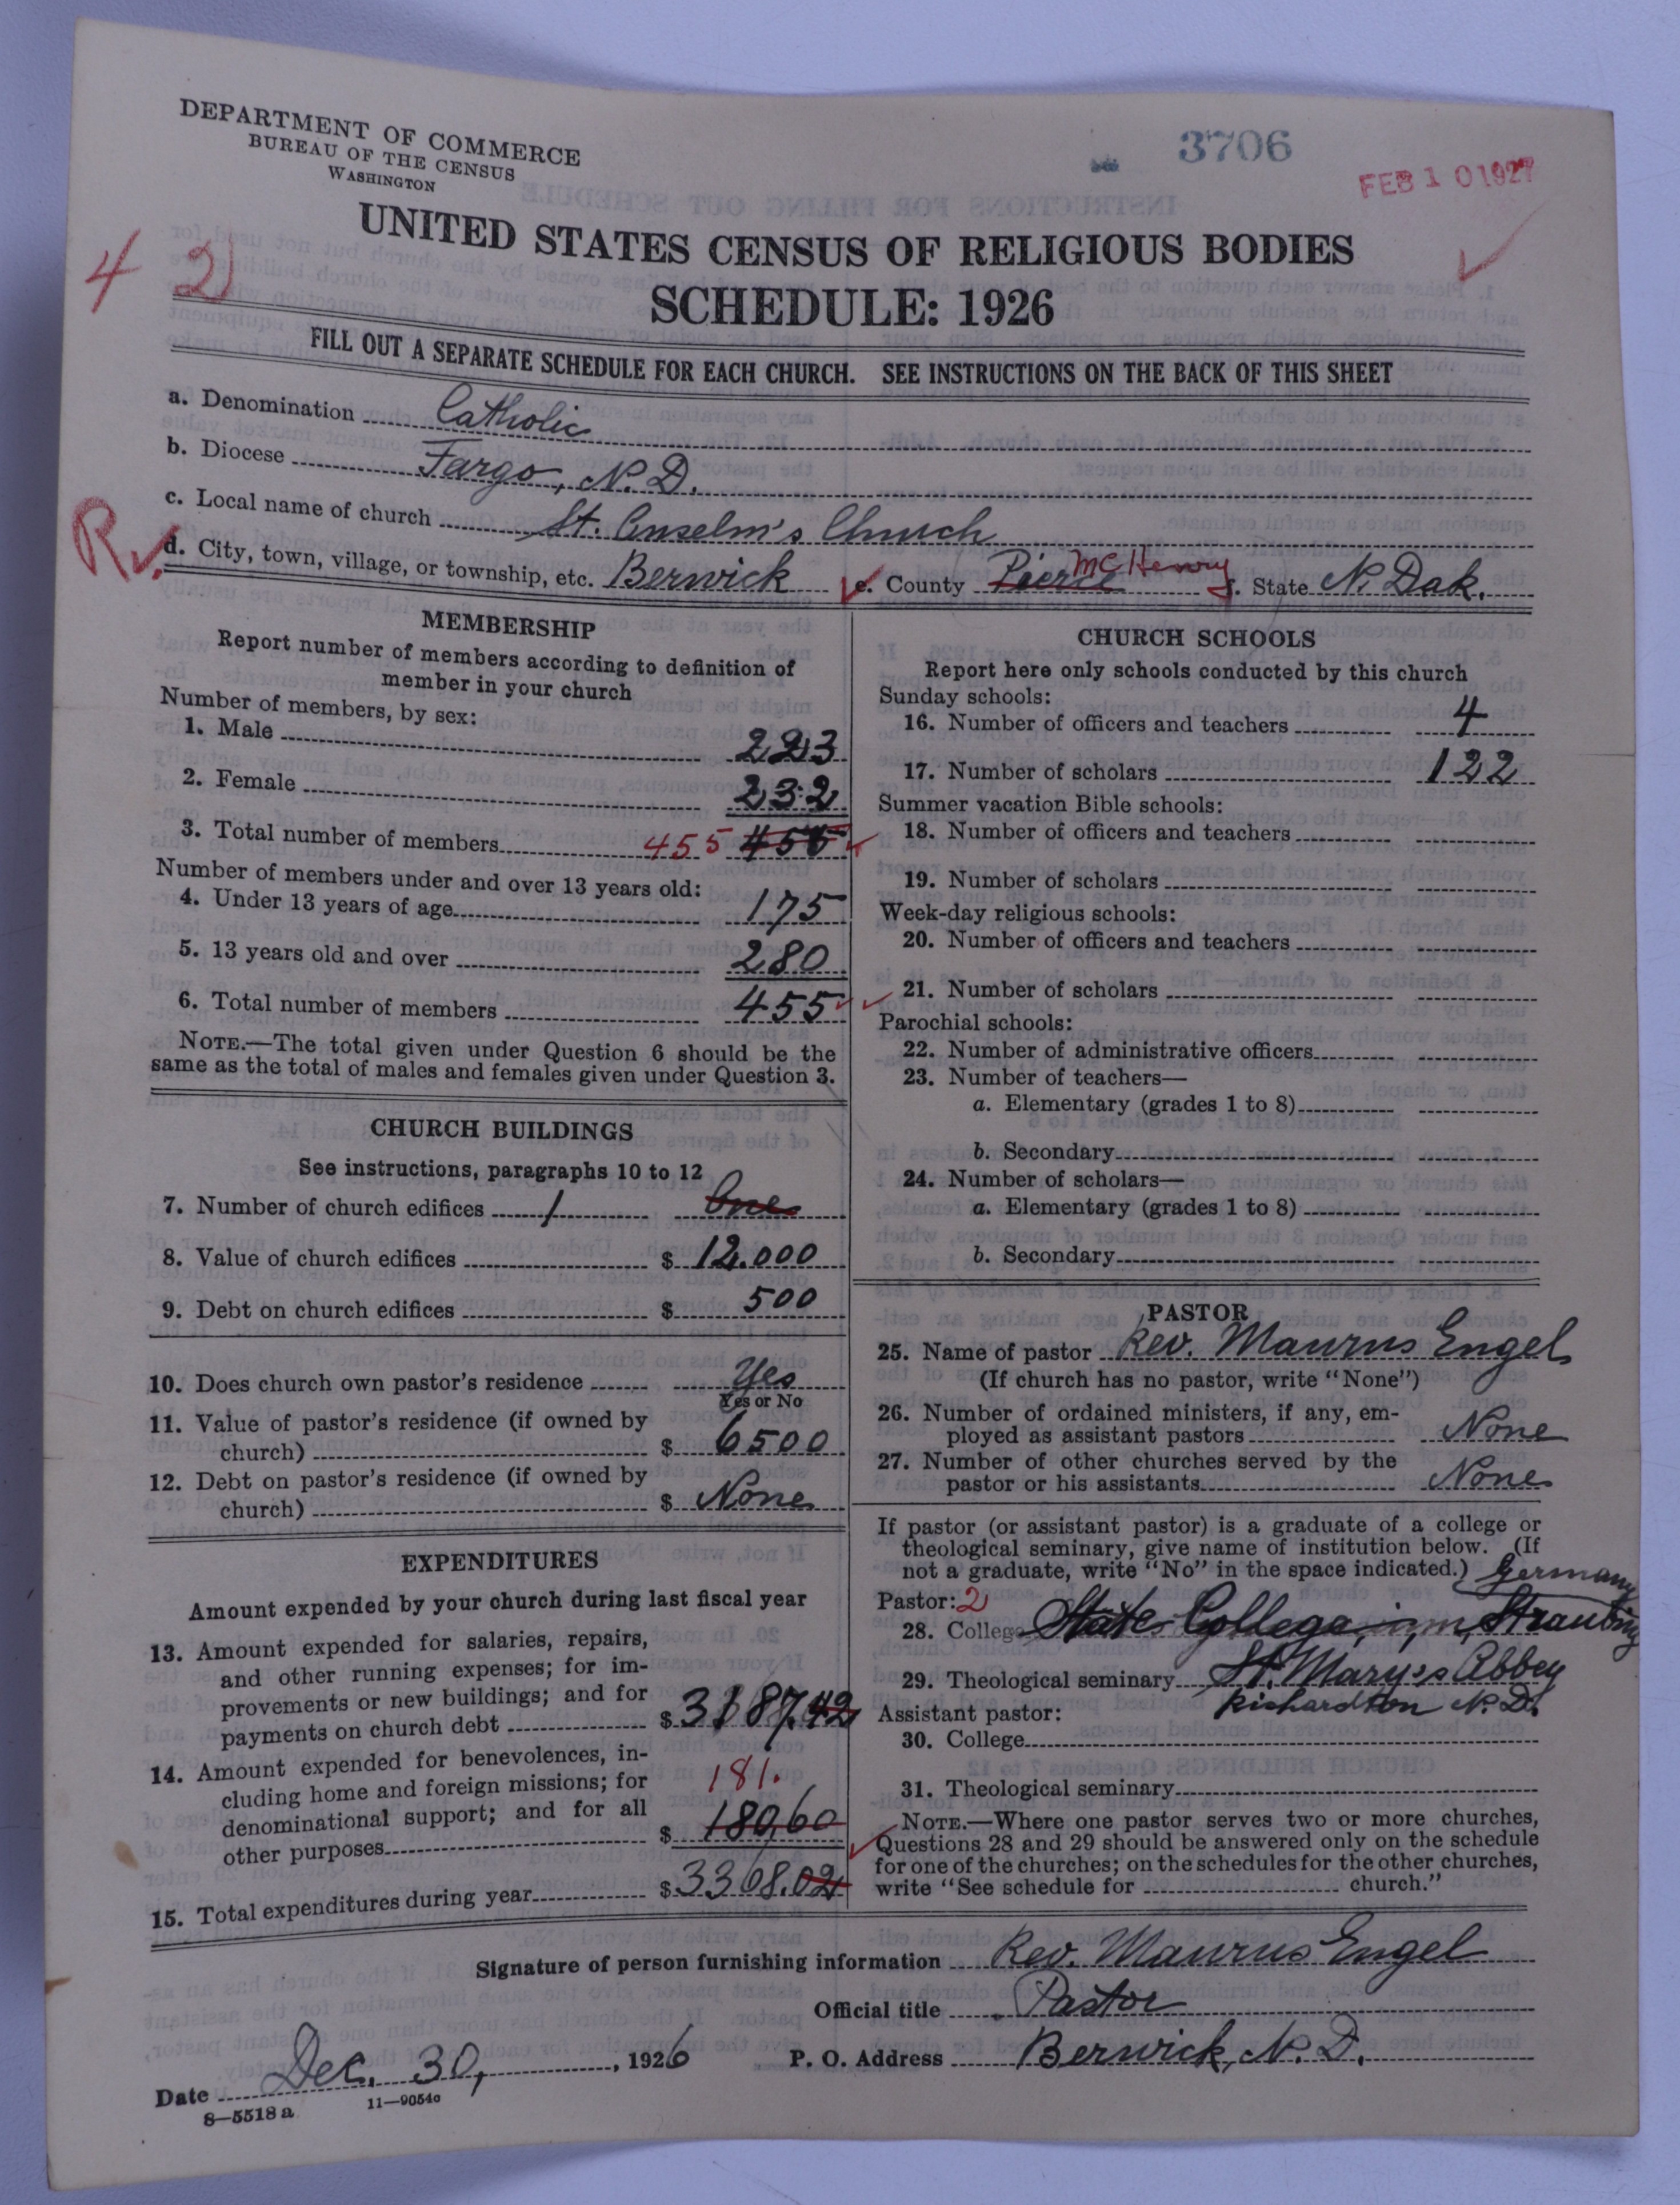 DEPARTMENT OF COMMERCE
BUREAU OF THE CENSUS
WASHINGTON
3706
FEB 10 1927
UNITED STATES CENSUS OF RELIGIOUS BODIES
SCHEDULE: 1926
4 2
FILL OUT A SEPARATE SCHEDULE FOR EACH CHURCH. SEE INSTRUCTIONS ON THE BACK OF THIS SHEET
a. Denomination Catholic
b. Diocese Fargo, N.D.
c. Local name of church St. Anselm's Church
R
d. City, town, village, or township, etc. Berwick e. County Pierce McHenry f. State N. Dak.
MEMBERSHIP
Report number of members according to definition of
member in your church
Number of members, by sex:
1. Male 223
2. Female 232
3. Total number of members 455 455
Number of members under and over 13 years old:
4. Under 13 years of age 175
5. 13 years old and over 280
6. Total number of members 455
NOTE.—The total given under Question 6 should be the
same as the total of males and females given under Question 3.
CHURCH BUILDINGS
See instructions, paragraphs 10 to 12
7. Number of church edifices 1 One
8. Value of church edifices $ 12.000
9. Debt on church edifices $ 500
10. Does church own pastor's residence Yes
Yes or No
11. Value of pastor's residence (if owned by
church) $ 6500
12. Debt on pastor's residence (if owned by
church) $ None
EXPENDITURES
Amount expended by your church during last fiscal year
13. Amount expended for salaries, repairs,
and other running expenses; for im-
provements or new buildings; and for
payments on church debt $ 3187.42
14. Amount expended for benevolences, in-
cluding home and foreign missions; for 181.
denominational support; and for all
other purposes $ 180,60
15. Total expenditures during year $ 3368.02
CHURCH SCHOOLS
Report here only schools conducted by this church
Sunday schools:
16. Number of officers and teachers 4
17. Number of scholars 122
Summer vacation Bible schools:
18. Number of officers and teachers
19. Number of scholars
Week-day religious schools:
20. Number of officers and teachers
21. Number of scholars
Parochial schools:
22. Number of administrative officers
23. Number of teachers—
a. Elementary (grades 1 to 8)
b. Secondary
24. Number of scholars—
a. Elementary (grades 1 to 8)
b. Secondary
PASTOR
25. Name of pastor Rev. Maurus Engel
(If church has no pastor, write "None")
26. Number of ordained ministers, if any, em-
ployed as assistant pastors None
27. Number of other churches served by the
pastor or his assistants None
If pastor (or assistant pastor) is a graduate of a college or
theological seminary, give name of institution below. (If
not a graduate, write "No" in the space indicated.) Germany
Pastor: 2
28. College State College, in Straubing
29. Theological seminary St. Mary's Abbey
Richardton N.D.
Assistant pastor:
30. College
31. Theological seminary
NOTE.—Where one pastor serves two or more churches,
Questions 28 and 29 should be answered only on the schedule
for one of the churches; on the schedules for the other churches,
write "See schedule for church."
Signature of person furnishing information Rev. Maurus Engel
Official title Pastor
Date Dec. 30, 1926 P. O. Address Berwick, N. D.
8—5518 a 11—9054a